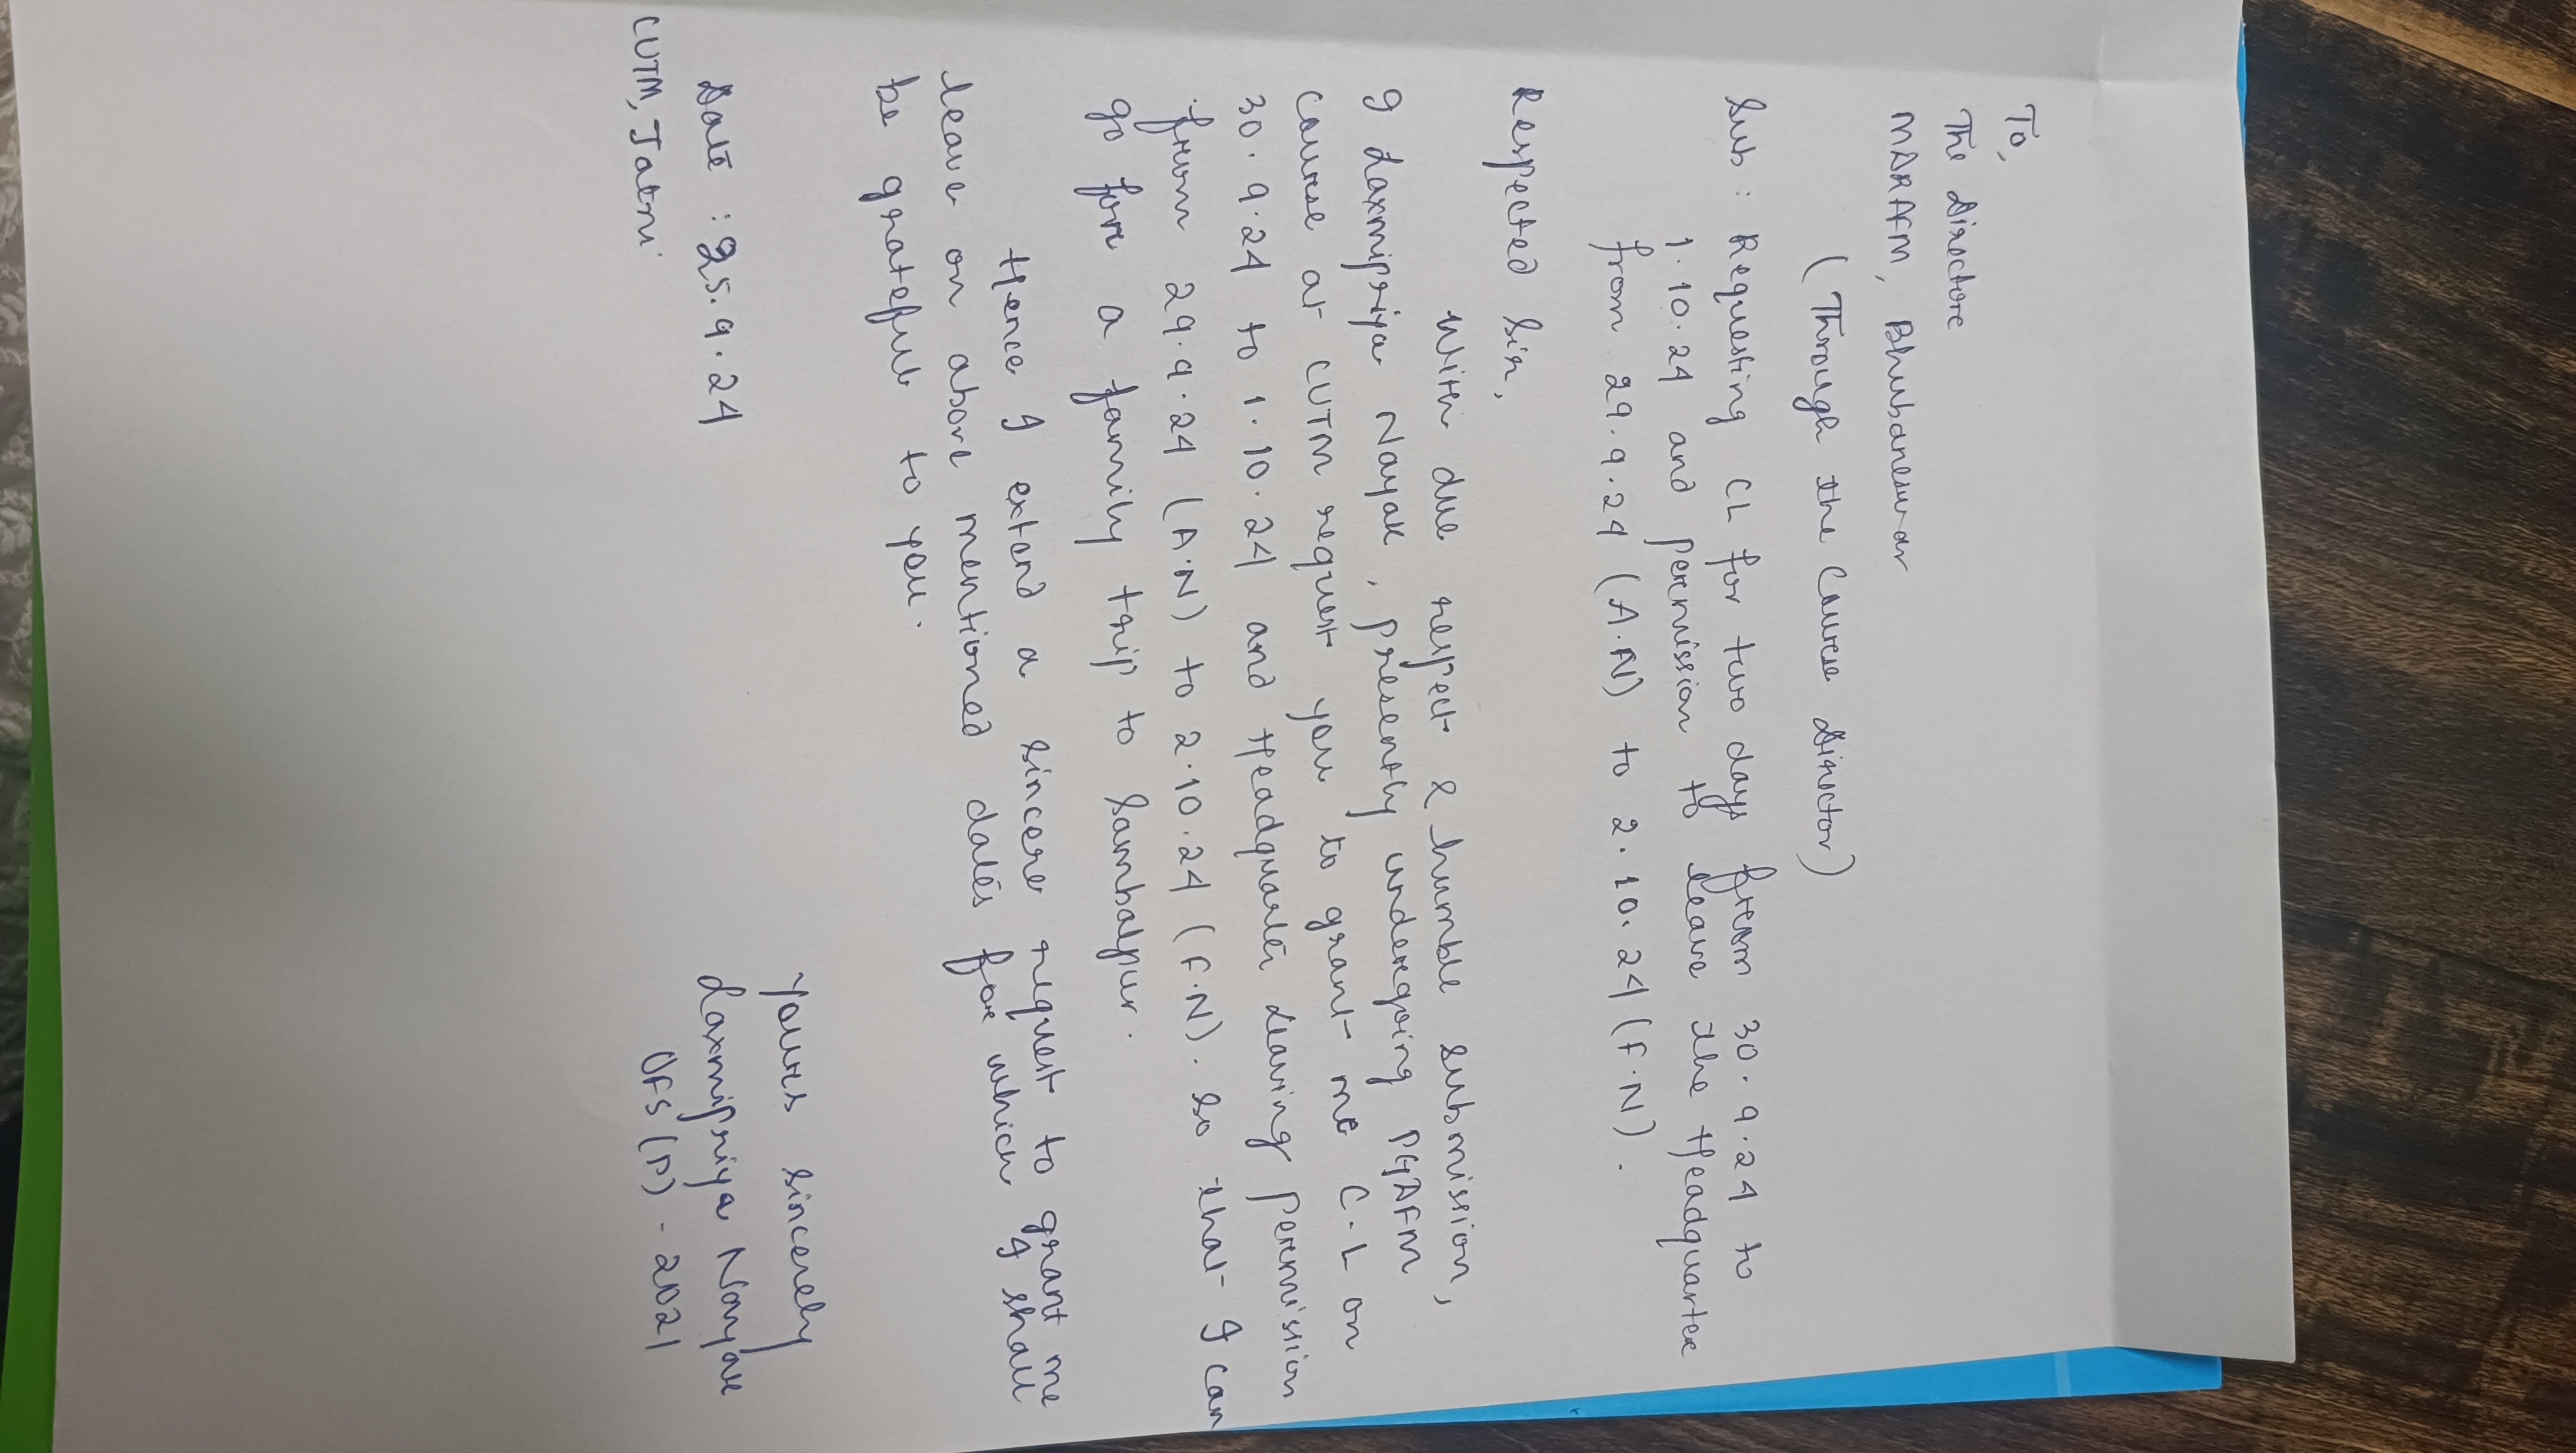 To,
The Director
MDRAFM, Bhubaneswar
(Through the Course Director)
Sub : Requesting CL for two days from 30.9.24 to
1.10.24 and permission to leave the Headquarter
from 29.9.24 (A.N) to 2.10.24 (F.N).
Respected Sir,
With due respect & humble submission,
I Laxmipriya Nayak, presently undergoing PGDFM
Course at CUTM request you to grant me C.L on
30.9.24 to 1.10.24 and Headquarter leaving permission
from 29.9.24 (A.N) to 2.10.24 (F.N). So that I can
go for a family trip to Sambalpur.
Hence I extend a sincere request to grant me
leave on above mentioned dates for which I shall
be grateful to you.
Yours sincerely
Date : 25.9.24
Laxmipriya Nayak
CUTM, Jatni
OFS (P) - 2021